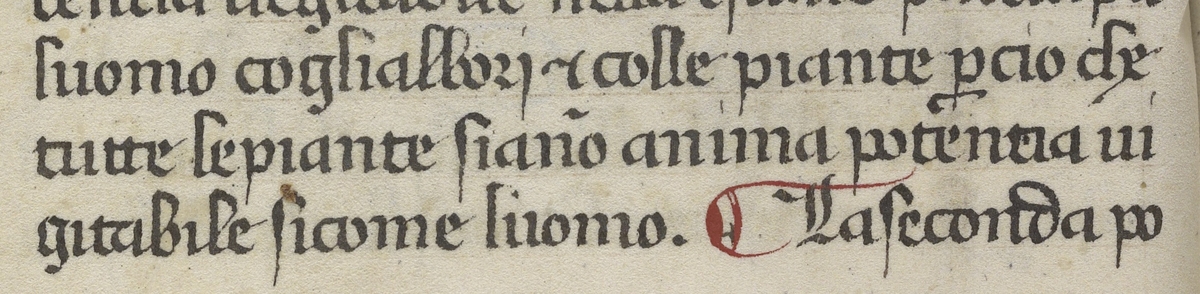 luomo coglialbori ⁊ colle piante ꝑcio che
tutte lepiante siano᷃ anima potentia ui
gitabile sicome luomo. ¶ La seconda po